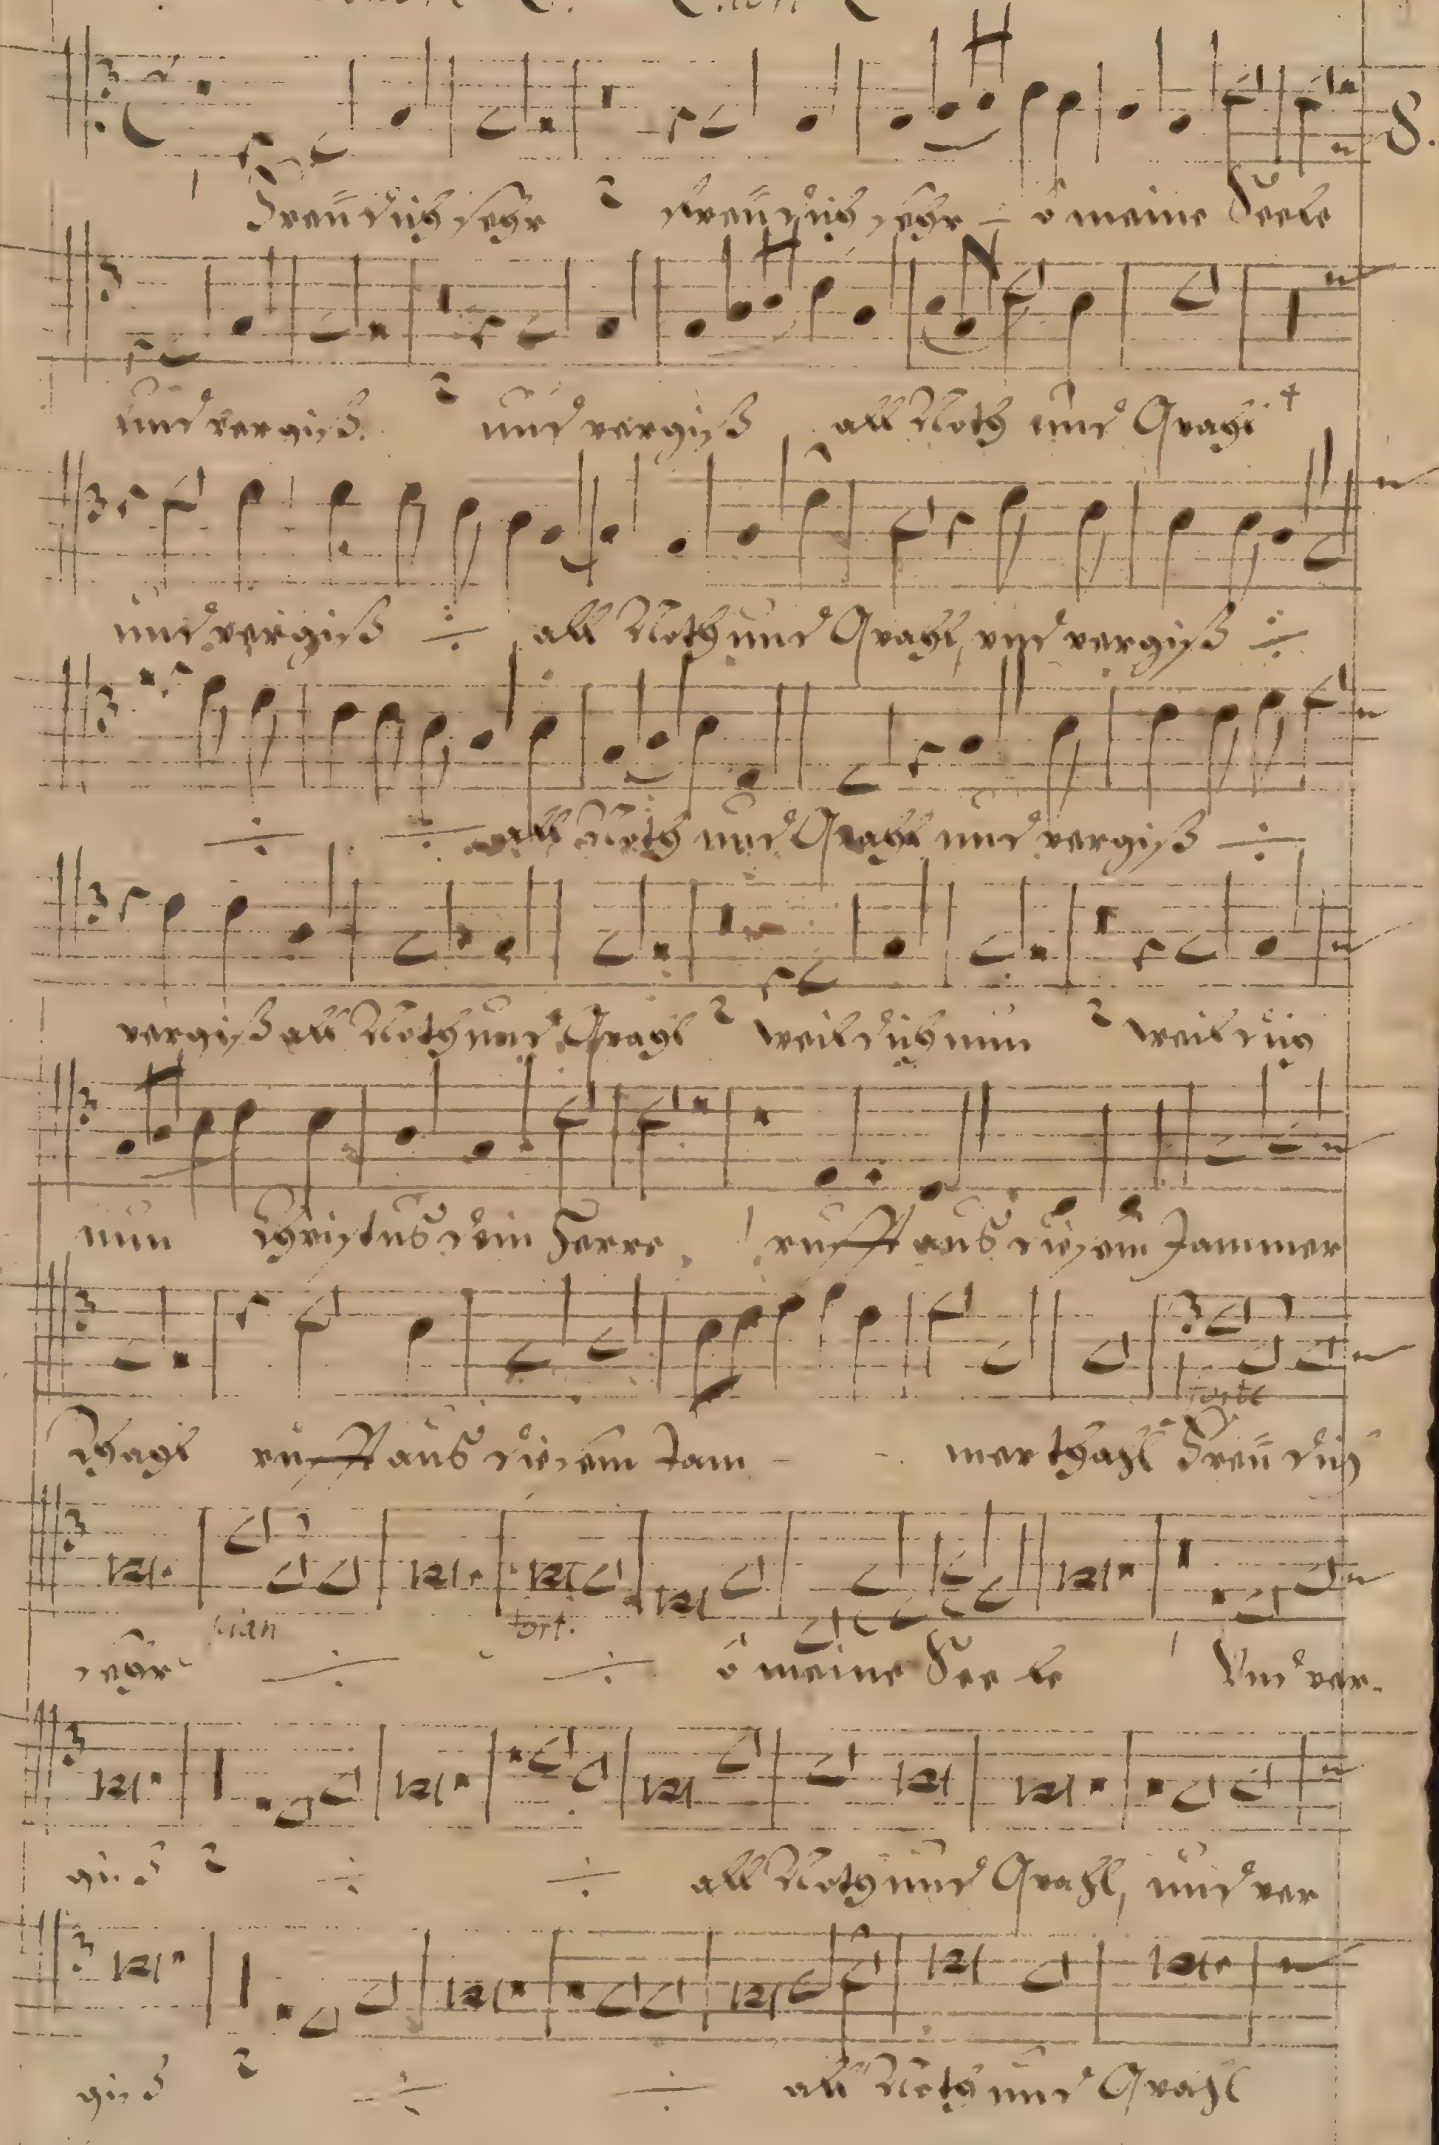 8.
Freu dich sehr 2 Freu dich sehr – o meine Seele
und vergiß 2 und vergiß all Noth und Qvahl
und vergiß ÷ all Noth und Qvahl, und vergiß ÷
÷ ÷ all Noth und Qvahl und vergiß ÷
vergiß all Noth und Qvahl 2 weil dich nun 2 weil dich
nun Christus dein Herre, rufft aus diesem Jammer
thahl rufft aus diesem Jam - - mer thahl Freu dich
forte
pian fort.
sehr ÷ ÷ o meine See le Und ver-
giß 2 ÷ ÷ all Noth und Qvahl, und ver
giß 2 ÷ ÷ all Noth und Qvahl